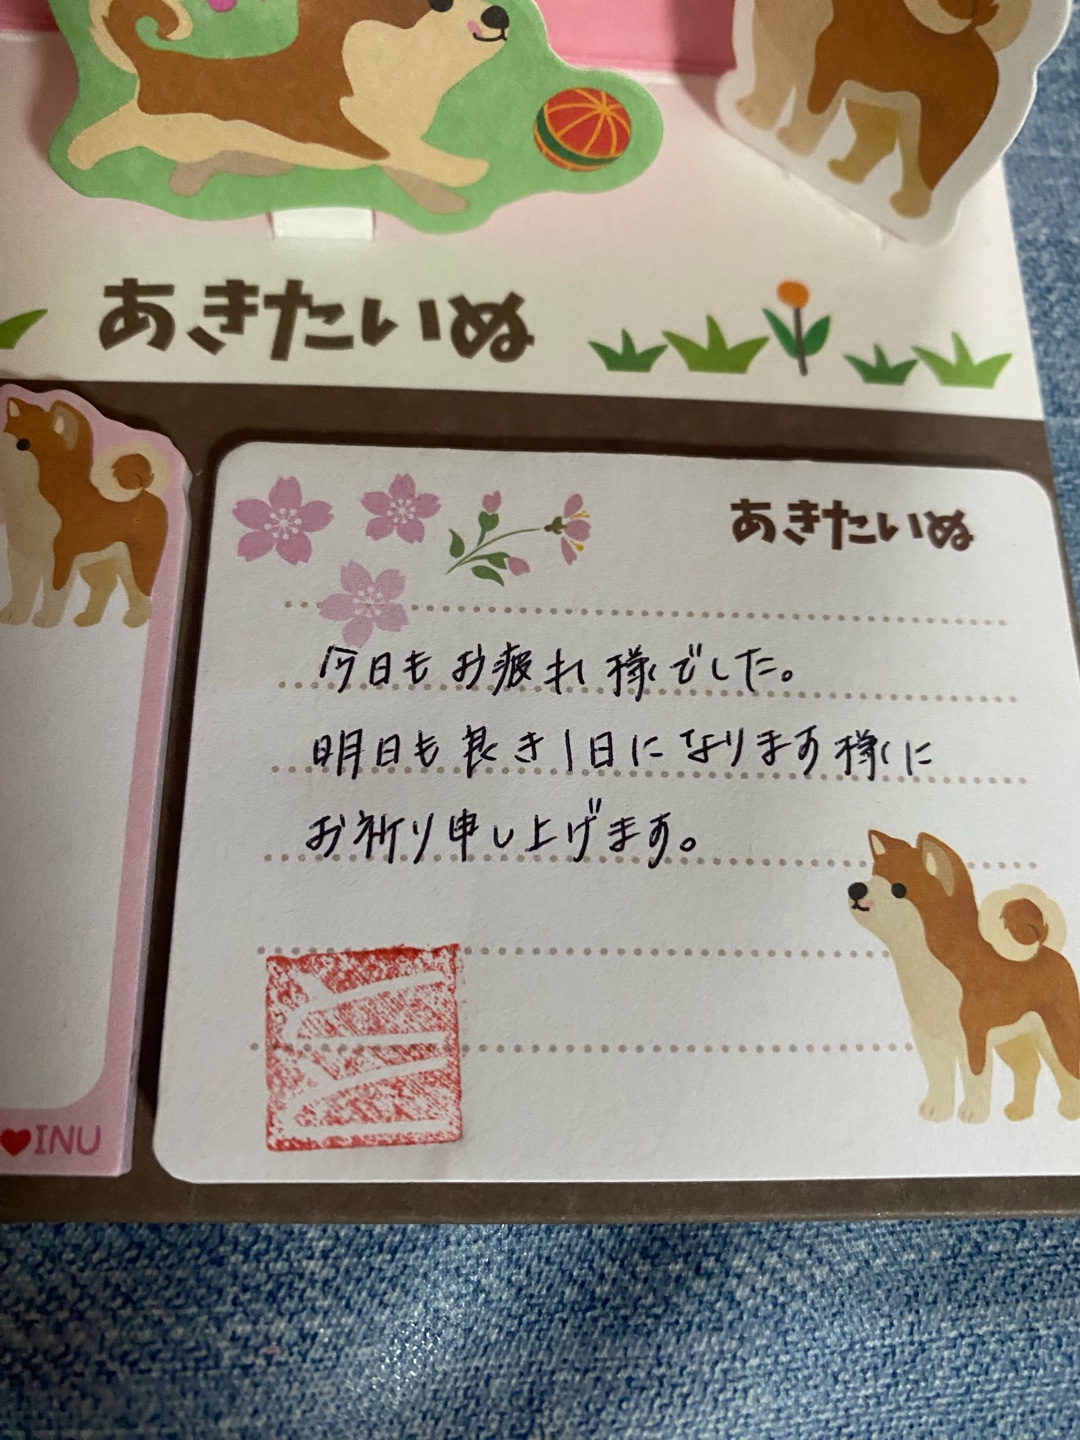 あきたいぬ
あきたいぬ
今日もお疲れ様でした。
明日も良き1日になります様に
お祈り申し上げます。
INU